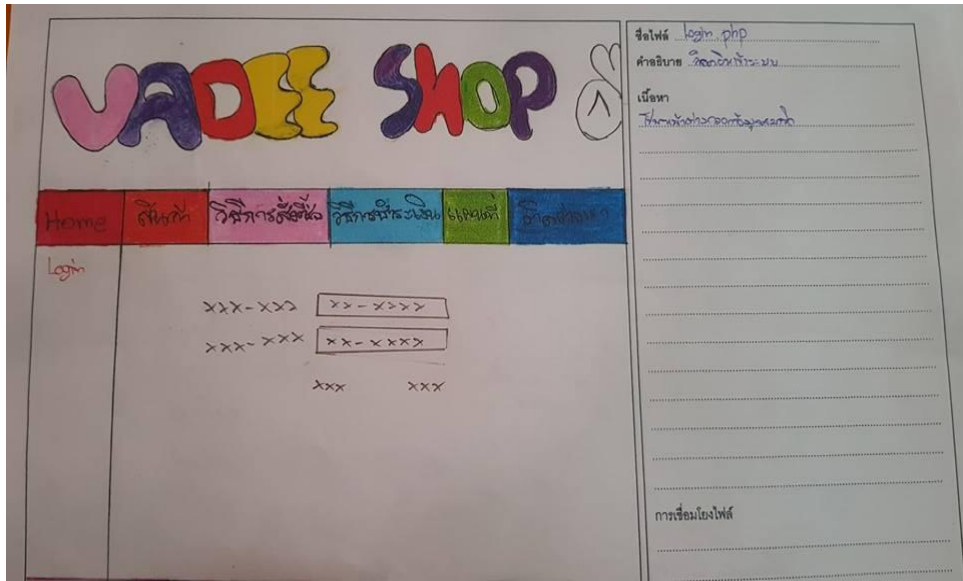 VADEE SHOP
Home สินค้า วิธีการสั่งซื้อ วิธีการชำระเงิน แผนที่ ติดต่อเรา
Login
xxx-xxx xx-xxxx
xxx-xxx xx-xxxx
xxx xxx
ชื่อไฟล์ login.php
คำอธิบาย ล็อกอินเข้าระบบ
เนื้อหา
การเชื่อมโยงไฟล์